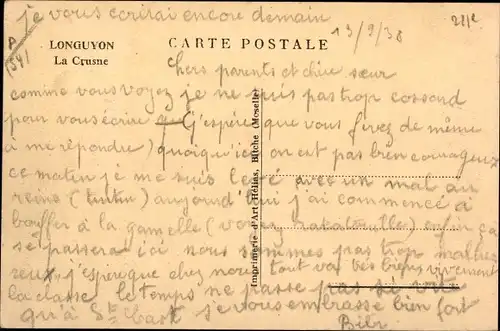 je vous écrirai encore demain
13/9/38
LONGUYON
La Crusne
CARTE POSTALE
chers parents et chère sœur
comme vous voyez je ne suis pas trop cossard
pour vous écrire (j'espère que vous ferez de même
à me répondre) quoiqu'ici on est pas bien courageux
ce matin je me suis levé avec un mal au
reins (tintin) aujourd'hui j'ai commencé à
bouffer à la gamelle (voyez ratatouille) enfin ça
se passera ici nous sommes pas trop malheu
reux, j'espère que chez nous tout va très bien vivement
la classe le temps ne passe pas si vite
qu'à St je vous embrasse bien fort
Imprimerie d'Art Hélins, Bitche (Moselle)